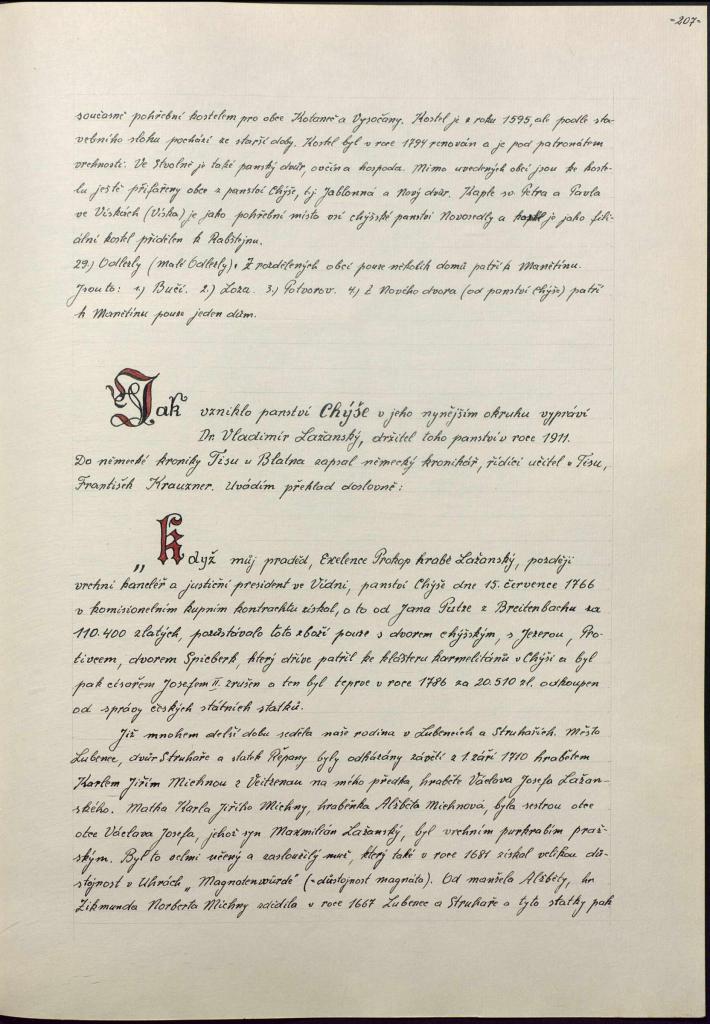 -207-
současně pohřební kostelem pro obce Kotaneč a Vysočany. Kostel je z roku 1595, ale podle sta-
vebního slohu pochází ze starší doby. Kostel byl v roce 1794 renován a je pod patronátem
vrchnosti. Ve Stvolně je také panský dvůr, ovčín a hospoda. Mimo uvedených obcí jsou ke koste-
lu ještě přifařeny obce z panství Chýše, tj. Jablonná a Nový dvůr. Kaple sv. Petra a Pavla
ve Vískách (Víska) je jako pohřební místo vsi chýšské panství Novosedly a je jako fili-
ální kostel přidělen k Rabštejnu.
29.) Odlezly (Malé Odlezly). Z rozdělených obcí pouze několik domů patří k Manětínu.
Jsou to: 1.) Bučí. 2.) Loza. 3.) Potvorov. 4.) Z Nového dvora (od panství Chýše) patří
k Manětínu pouze jeden dům.
Jak vzniklo panství Chýše v jeho nynějším okruhu vypráví
Dr. Vladimír Lažanský, držitel toho panství v roce 1911.
Do německé kroniky Tisu u Blatna zapsal německý kronikář, řídící učitel v Tisu,
František Krauzner. Uvádím překlad doslovně:
„Když můj praděd, Exelence Prokop hrabě Lažanský, později
vrchní kancléř a justiční president ve Vídni, panství Chýše dne 15. července 1766
v komisionelním kupním kontraktu získal, a to od Jana Putze z Breitenbachu za
110.400 zlatých, pozůstávalo toto zboží pouze s dvorem chýšským, s Jezerou, Pro-
tivcem, dvorem Spieberk, který dříve patřil ke klášteru karmelitánů v Chýši a byl
pak císařem Josefem II. zrušen a ten byl teprve v roce 1786 za 20.510 zl. odkoupen
od správy českých státních statků.
Již mnohem delší dobu seděla naše rodina v Lubencích a Struhařích. Město
Lubenec, dvůr Struhaře a statek Řepany byly odkázány závětí z 1. září 1710 hrabětem
Karlem Jiřím Michnou z Veitzenau na mého předka, hraběte Václava Josefa Lažan-
ského. Matka Karla Jiřího Michny, hraběnka Alžběta Michnová, byla sestrou otce
otce Václava Josefa, jehož syn Maxmilián Lažanský, byl vrchním purkrabím praž-
ským. Byl to velmi učený a zasloužilý muž, který také v roce 1681 získal velikou dů-
stojnost v Uhrách „Magnatenwürde" (=důstojnost magnáta). Od manžela Alžběty, hr.
Zikmunda Norberta Michny zdědila v roce 1667 Lubenec a Struhaře a tyto statky pak